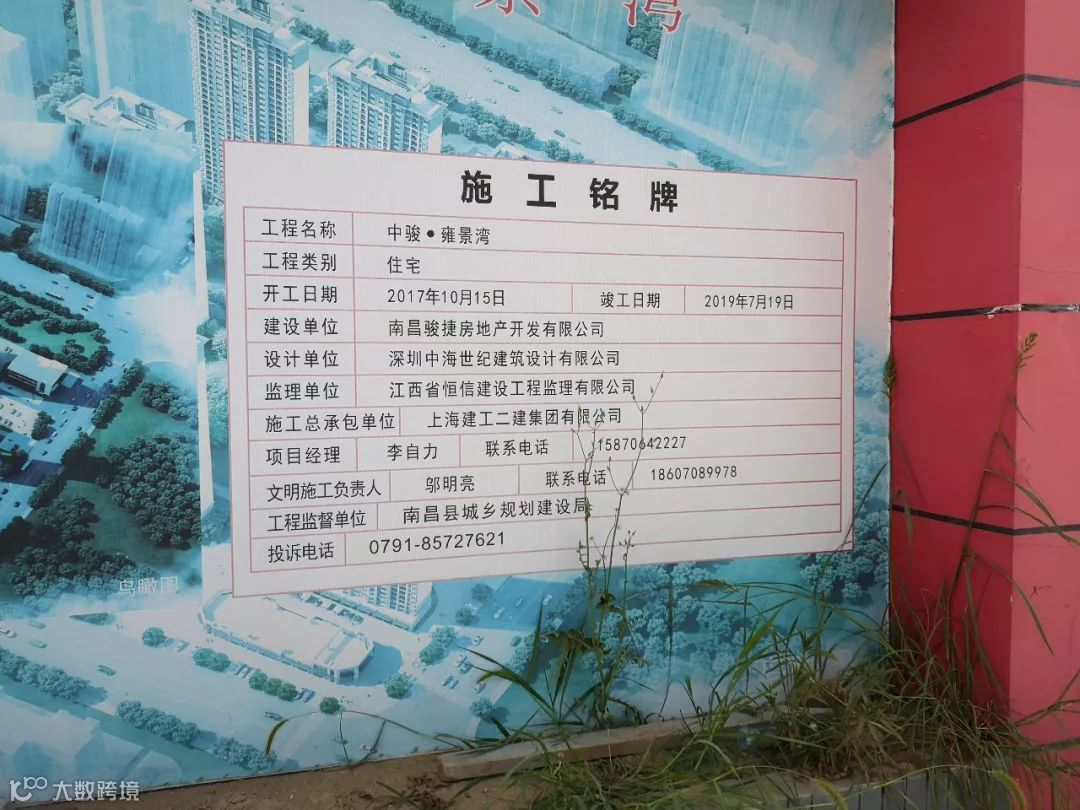 京 湾
施工铭牌
工程名称 中骏•雍景湾
工程类别 住宅
开工日期 2017年10月15日 竣工日期 2019年7月19日
建设单位 南昌骏捷房地产开发有限公司
设计单位 深圳中海世纪建筑设计有限公司
监理单位 江西省恒信建设工程监理有限公司
施工总承包单位 上海建工二建集团有限公司
项目经理 李自力 联系电话 15870642227
文明施工负责人 邬明亮 联系电话 18607089978
工程监督单位 南昌县城乡规划建设局
投诉电话 0791-85727621
鸟瞰图
大数跨境